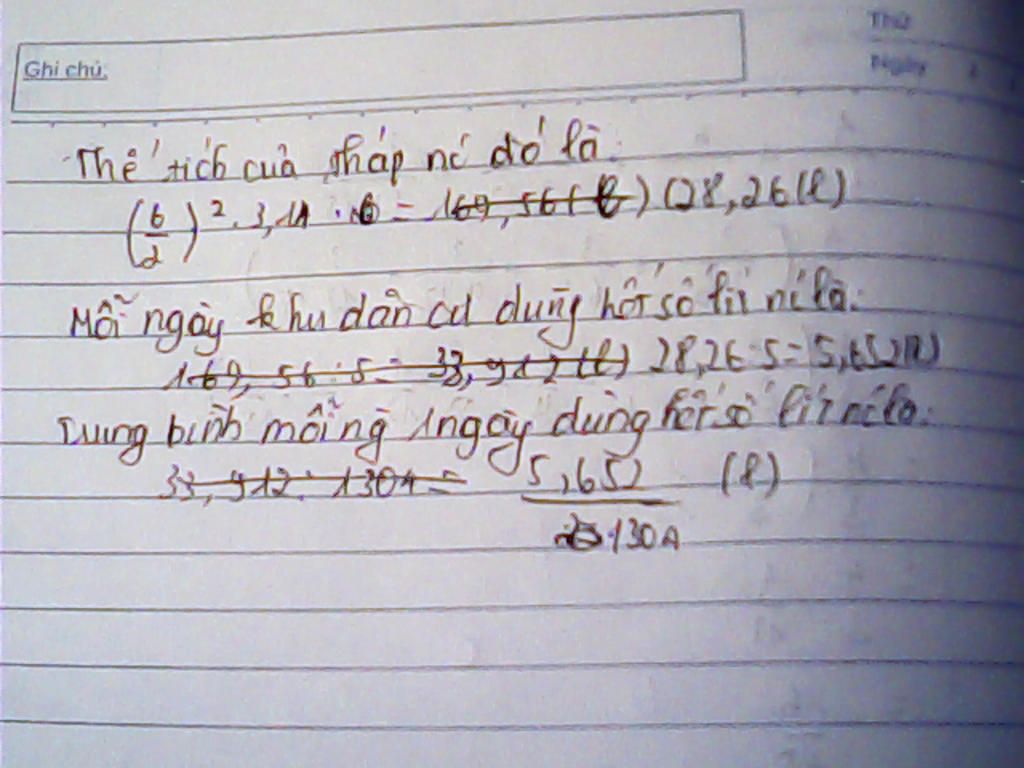 Ghi chú:
Thứ
Ngày
Thể tích của tháp nc đó là:
(6/2)² . 3,14 . 6 = 169,56 (l) (28,26 (l)
Mỗi ngày khu dân cư dùng hết số lít nc là:
169,56 : 5 = 33,912 (l) 28,26 : 5 = 5,652 (l)
Trung bình mỗi ng 1 ngày dùng hết số lít nc là:
33,912 : 1304 = 5,652 (l)
1304